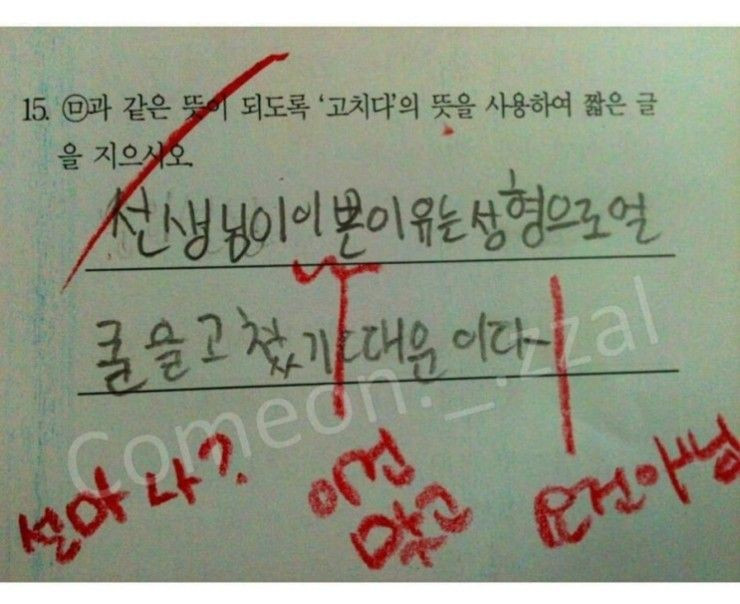 15. ㉤과 같은 뜻이 되도록 '고치다'의 뜻을 사용하여 짧은 글
을 지으시오.
선생님이 이쁜이유는 성형으로얼
굴을고쳤기때문이다
설마 나?
이건
맞고
요건아님
Comeon._.zzal